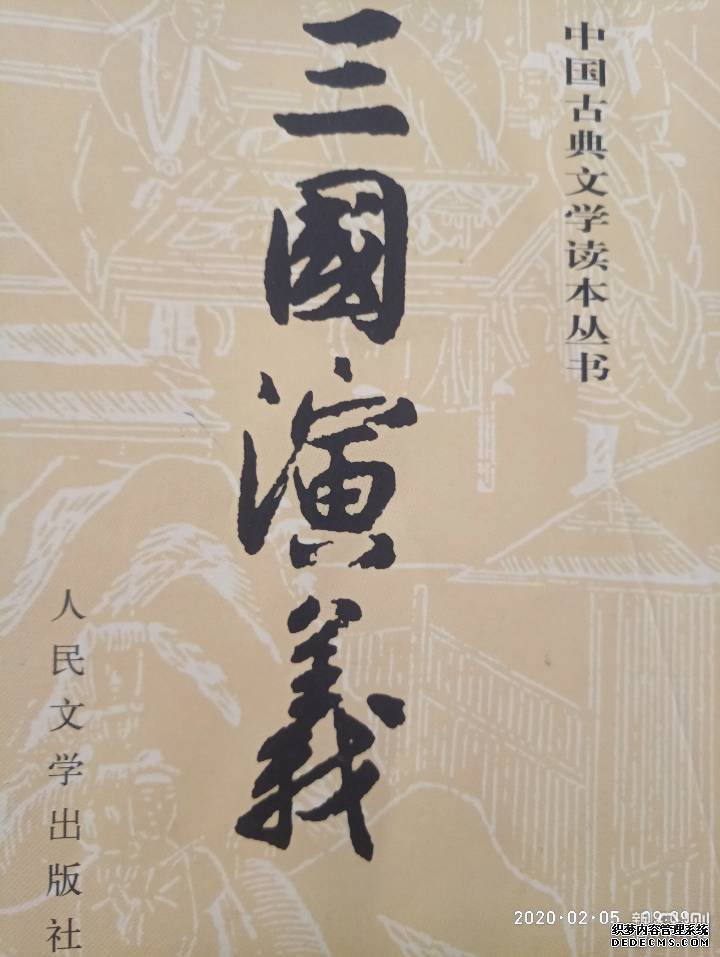 中国古典文学读本丛书
三國演義
人民文学出版社
2020-02-05 09:09
织梦内容管理系统
DEDECMS.COM